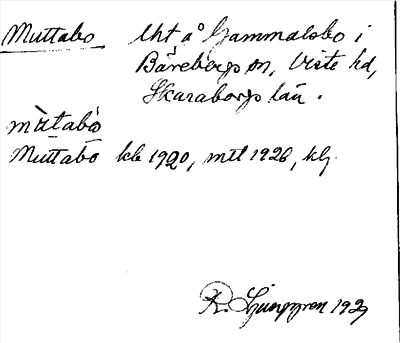 Muttabo lht å Gammalsbo i
Bärebergs sn, Viste hd,
Skaraborgs län.
mùtabó
Muttabo kb 1920, mtl 1926, klj.
R. Ljunggren 1927